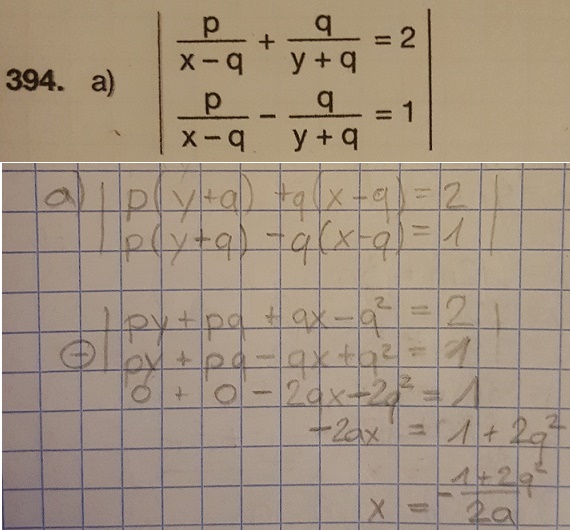 394. a) | p/(x-q) + q/(y+q) = 2 |
| p/(x-q) - q/(y+q) = 1 |
a) | p(y+q) + q(x-q) = 2 |
| p(y+q) - q(x-q) = 1 |
| py + pq + qx - q² = 2 |
⊖ | py + pq - qx + q² = 1
0 + 0 - 2qx - 2q² = 1
-2qx = 1 + 2q²
x = - (1+2q²)/2q